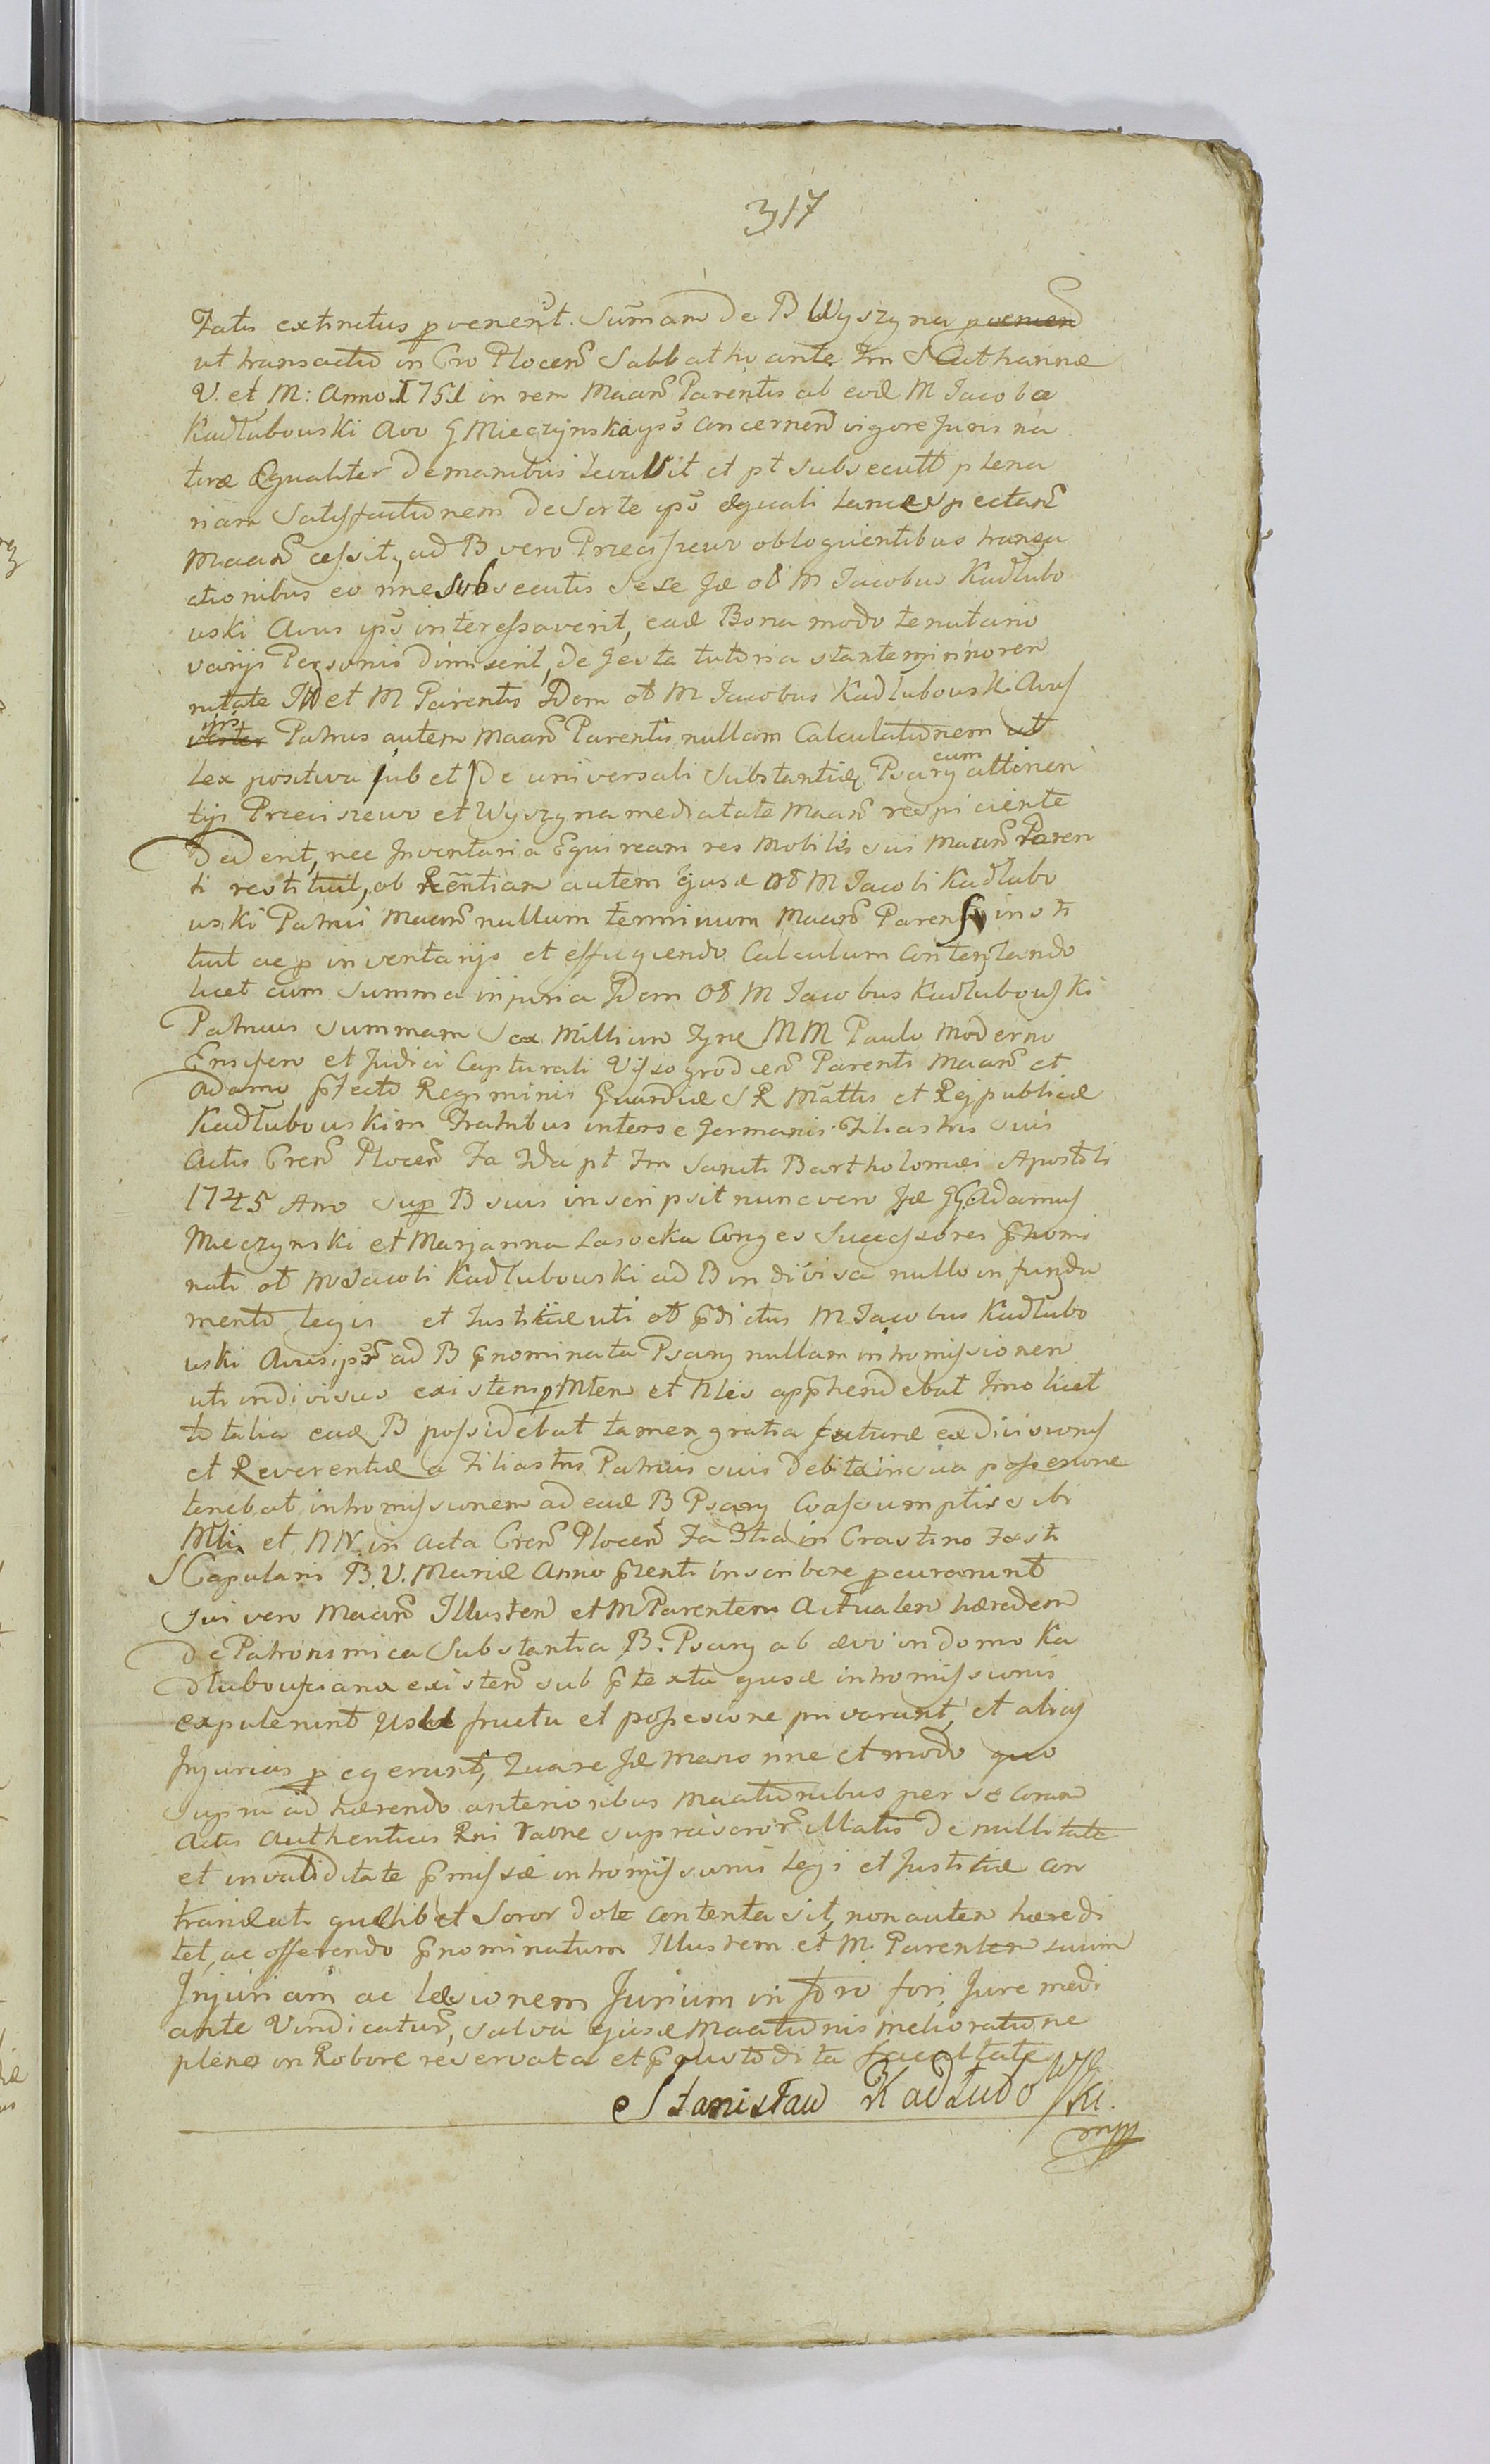 317
Fatis extinctus pvenerit. Sum̃am de B Wyszyna
ut transactio in Cro Plocen Sabbatho ante Fm S Cathannæ
V. et M: Anno 1751 in rem Maan Parentis ab eod M Jacobo
Kadłubouski Avo G Mieczynska ips concernen vigore Juris na
turæ Equaliter Demanibus Levavit et pt subsecutt plena
riam Satisfactionem De Sorte ips æquali Lance spectan
Maan cessit, ad B vero Przeciszewo obloquentibus transa
ctionibus eo nne subsecutis Sese Jd ol M Jacobus Kadłubo
uski Avus ips interessaverit, ead Bona modo tenutario
varijs Personis Dimiserit, De gesta tutoria stante minoren
nitate Ill et M Parentis Idem ol M Jacobus Kadłubouski Avus
ips
Patrus autem Maan Parentis nullam Calculationem ut
Lex positiva jubet De universali Substantia Psary cum attinen
tijs Przeciszewo et Wyszyna medietate Maan respiciente
Dederit, nec Inventaria Equiream res Mobiles sui Maan Paren
ti restituit, ob Rentiam autem Ejusd ol M Jacobi Kadłubo
uski Patrui Maan nullum terminum Maan Parens insti
tuit ac p inventarijs et effugiendo Calculum contentando
licet cum Summa injuria Idem Ol M Jacobus Kadłubouski
Patruus Summam Sex Millium Fpne MM Paulo Moderno
Ensifero et Judici Capturali Vissogrodien Parenti Maan et
Adamo Pfecto Regiminis Guardiæ S R Mattis et Reipublicæ
Kadłubouskim Fratribus inter se Germanis Filiastris suis
Actis Cren Plocen Fa 2da pt Fm Sancti Bartholomæi Apostoli
1745 Ano sup B suis inscripsit nunc vero Jd GG Adamus
Mieczynski et Marjanna Lasocka Conges Successores pnomi
nati ol M Jacobi Kadłubouski ad B indivisa nullo in funda
mento Legis et Justitiæ uti ol pdictus M Jacobus Kadłubo
uski Avus ipsr ad B pnominata Psary nullam intromissionem
uti indivisus existens p Mten et Nles apphendebat Imo licet
totalia ead B possidebat tamen gratia futuræ exdivisionis
et Reverentiæ a Filiastris Patruis suis Debitæ in sua possesione
tenebat intromissionem ad ead B Psary Coassumptis sibi
Mli et NN. in Acta Cren Plocen Fa 3tia in Crastino Festi
SCapularis B.V. Mariæ Anno pnti inscribere pcurarunt
Sui vero Maan Illustem et M Parentem Actualem hæredem
De Patronimica Substantia B. Psary ab ævo in domo Ka
dłubousciana existen sub ptextu ejusd intromissionis
expulerunt usu fructu et possesione privarunt, et alias
Injurias p egerunt, Quare Jd Mans nne et modo quo
supra id hærendo anterioribus Maationibus per se coram
Actis Authenticis Rni ratne supra scror illatis De nullitate
et invaliditate pmissæ intromissionis Legi et Justitiæ con
trarieati quælibet Soror dote contenta sit, non autem hæredi
tet, ac offerendo pnominatum Illustrem et M. Parentem suum
Injuriam ac læsionem Jurium in foro fori Jure medi
ante Vindicatur, salva ejusd Maationis melioratione
plene in Robore reservata et pcustodita facultate
Stanisław Kadłubowski.
mpp